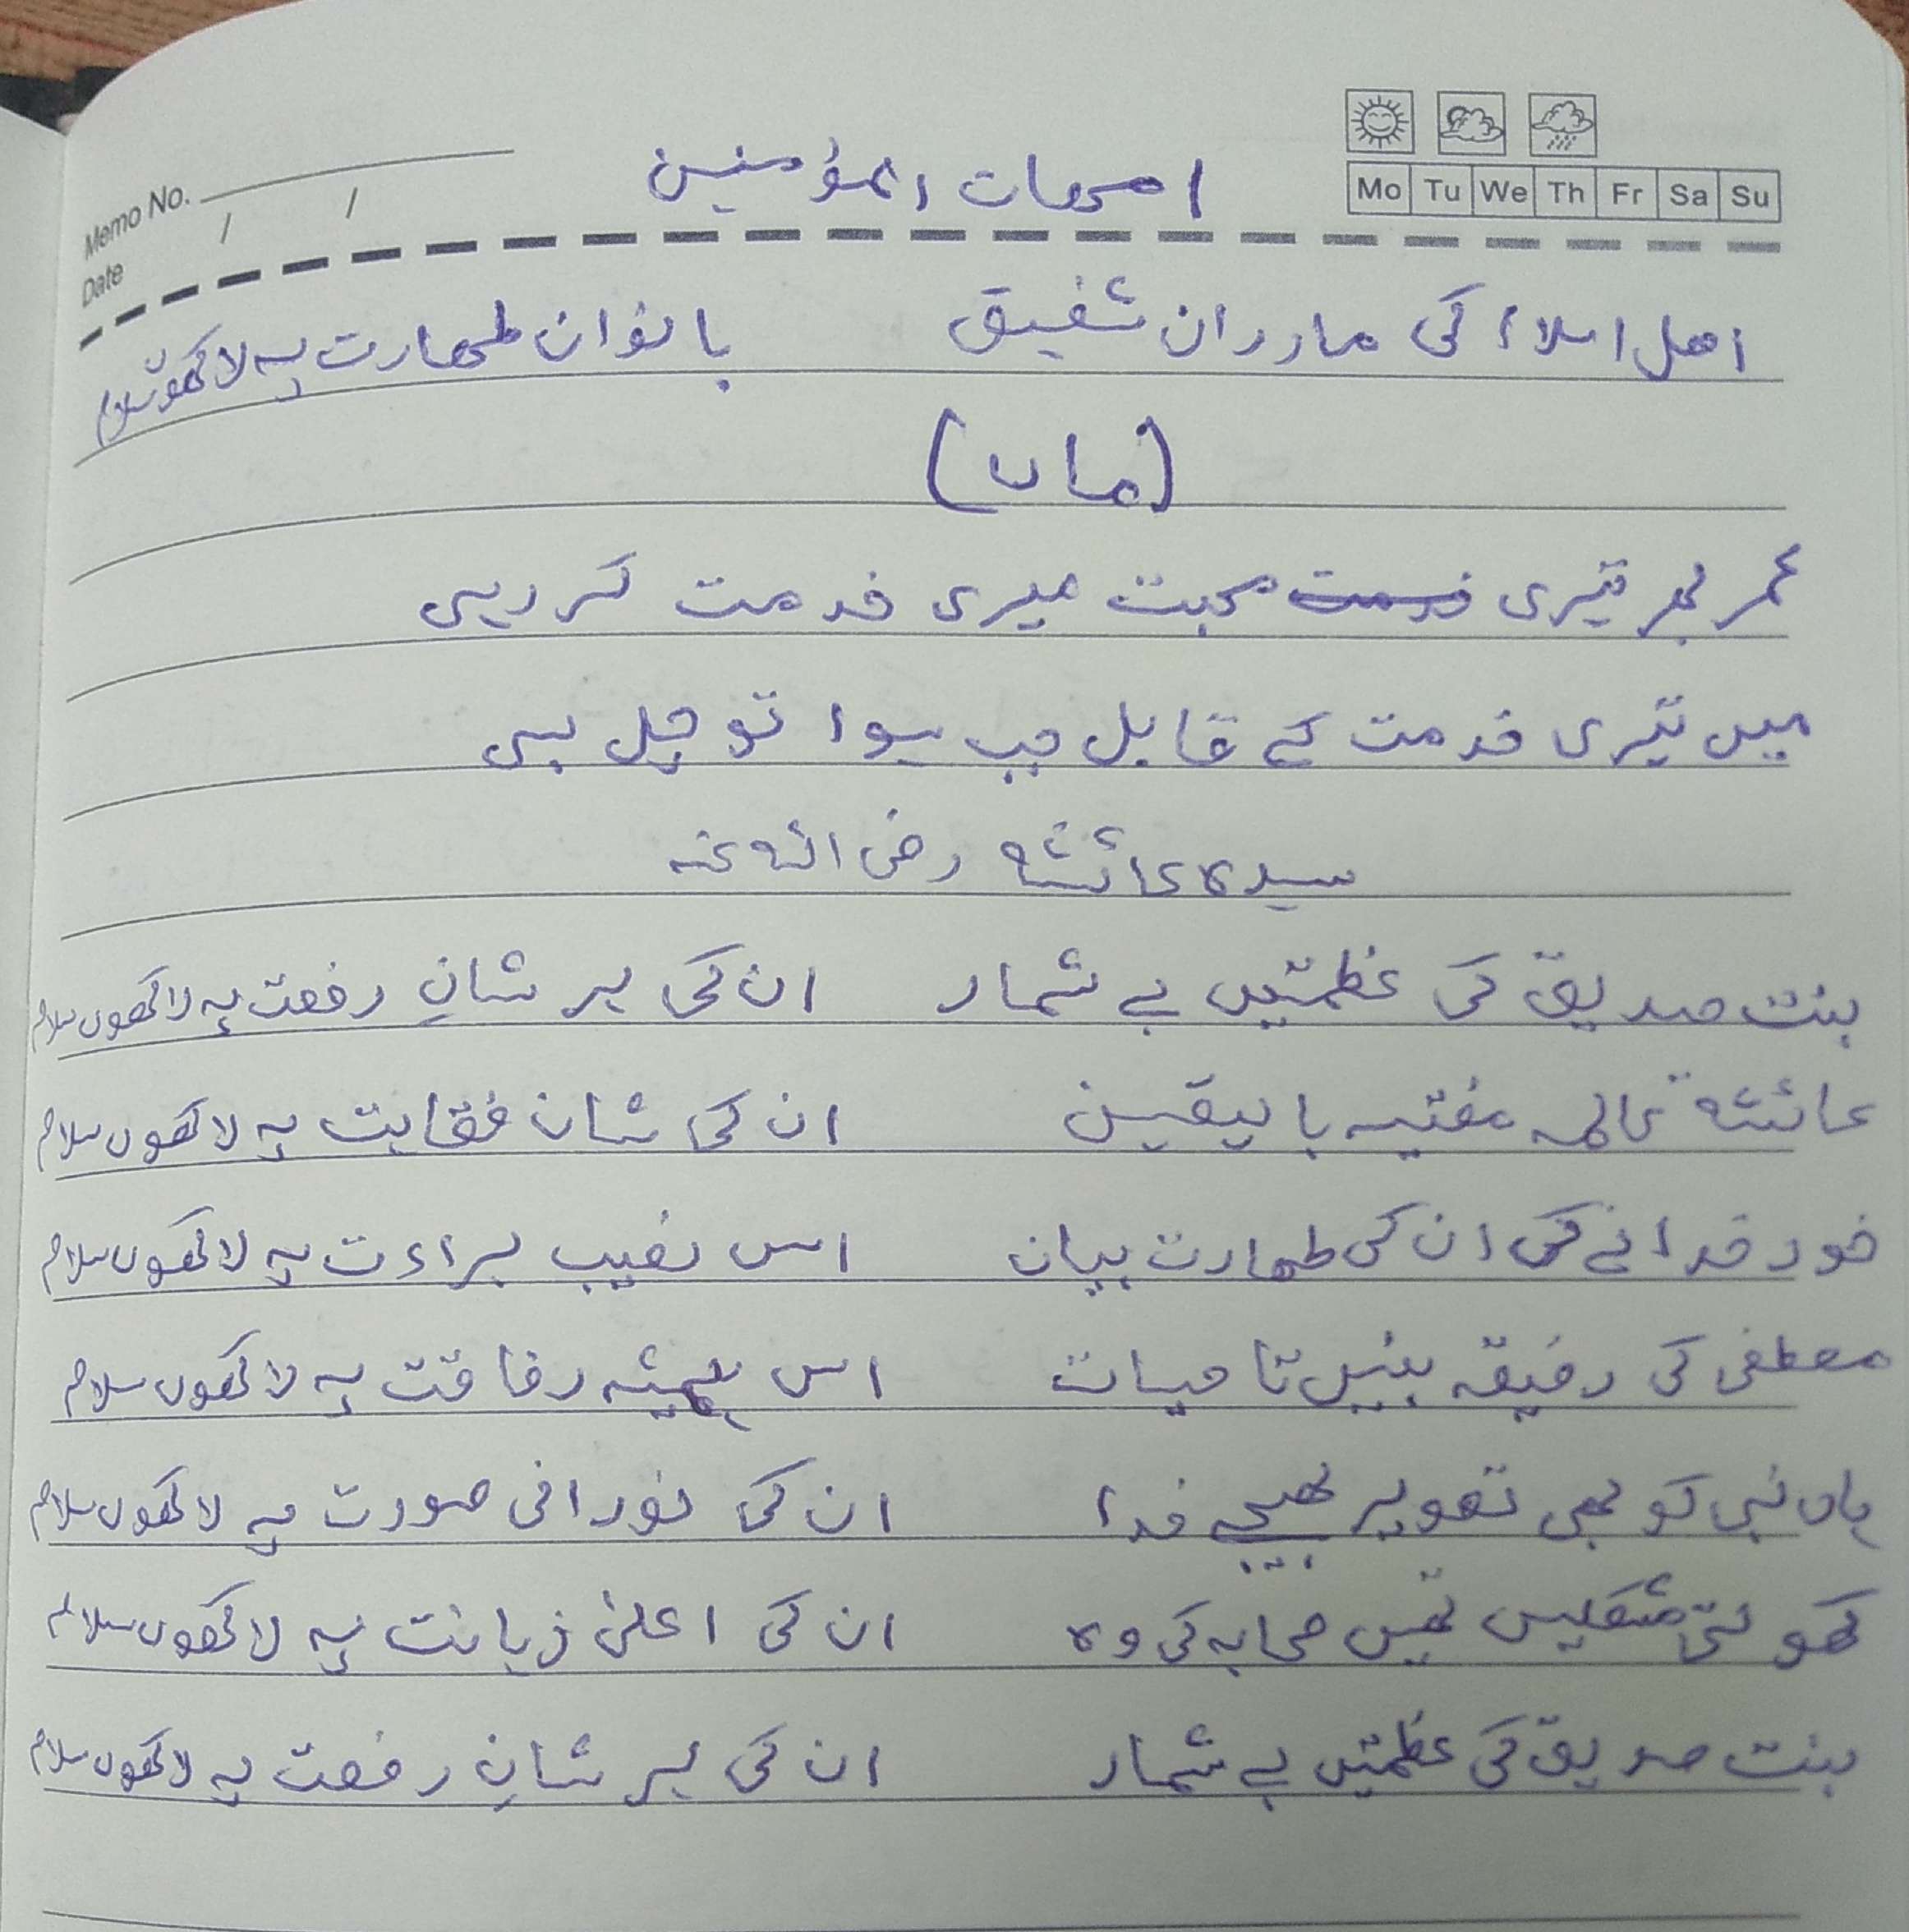 Memo No.
Date / /
Mo Tu We Th Fr Sa Su
امہات المؤمنین
اھل اسلام کی مادران شفیق بانوان طہارت پہ لاکھوں سلام
(ماں)
عمر بھر تیری خدمت محبت میری خدمت کر رہی
میں تیری خدمت کے قابل جب ہوا تو چل بسی
سیدہ عائشہ رضی اللہ عنہ
بنت صدیق کی عظمتیں بے شمار ان کی ہر شانِ رفعت پہ لاکھوں سلام
عائشہ عالمہ مفتیہ بالیقین ان کی شان فقاہت پہ لاکھوں سلام
خود خدا نے کی ان کی طہارت بیان اس نصیب براءت پہ لاکھوں سلام
مصطفی کی رفیقہ بنیں تا حیات اس ہمیشہ رفاقت پہ لاکھوں سلام
ہاں نبی کو بھی تصویر بھیجے خدا ان کی نورانی صورت پہ لاکھوں سلام
کھولتی مشکلیں تھیں صحابہ کی وہ ان کی اعلیٰ ذہانت پہ لاکھوں سلام
بنت صدیق کی عظمتیں بے شمار ان کی ہر شانِ رفعت پہ لاکھوں سلام